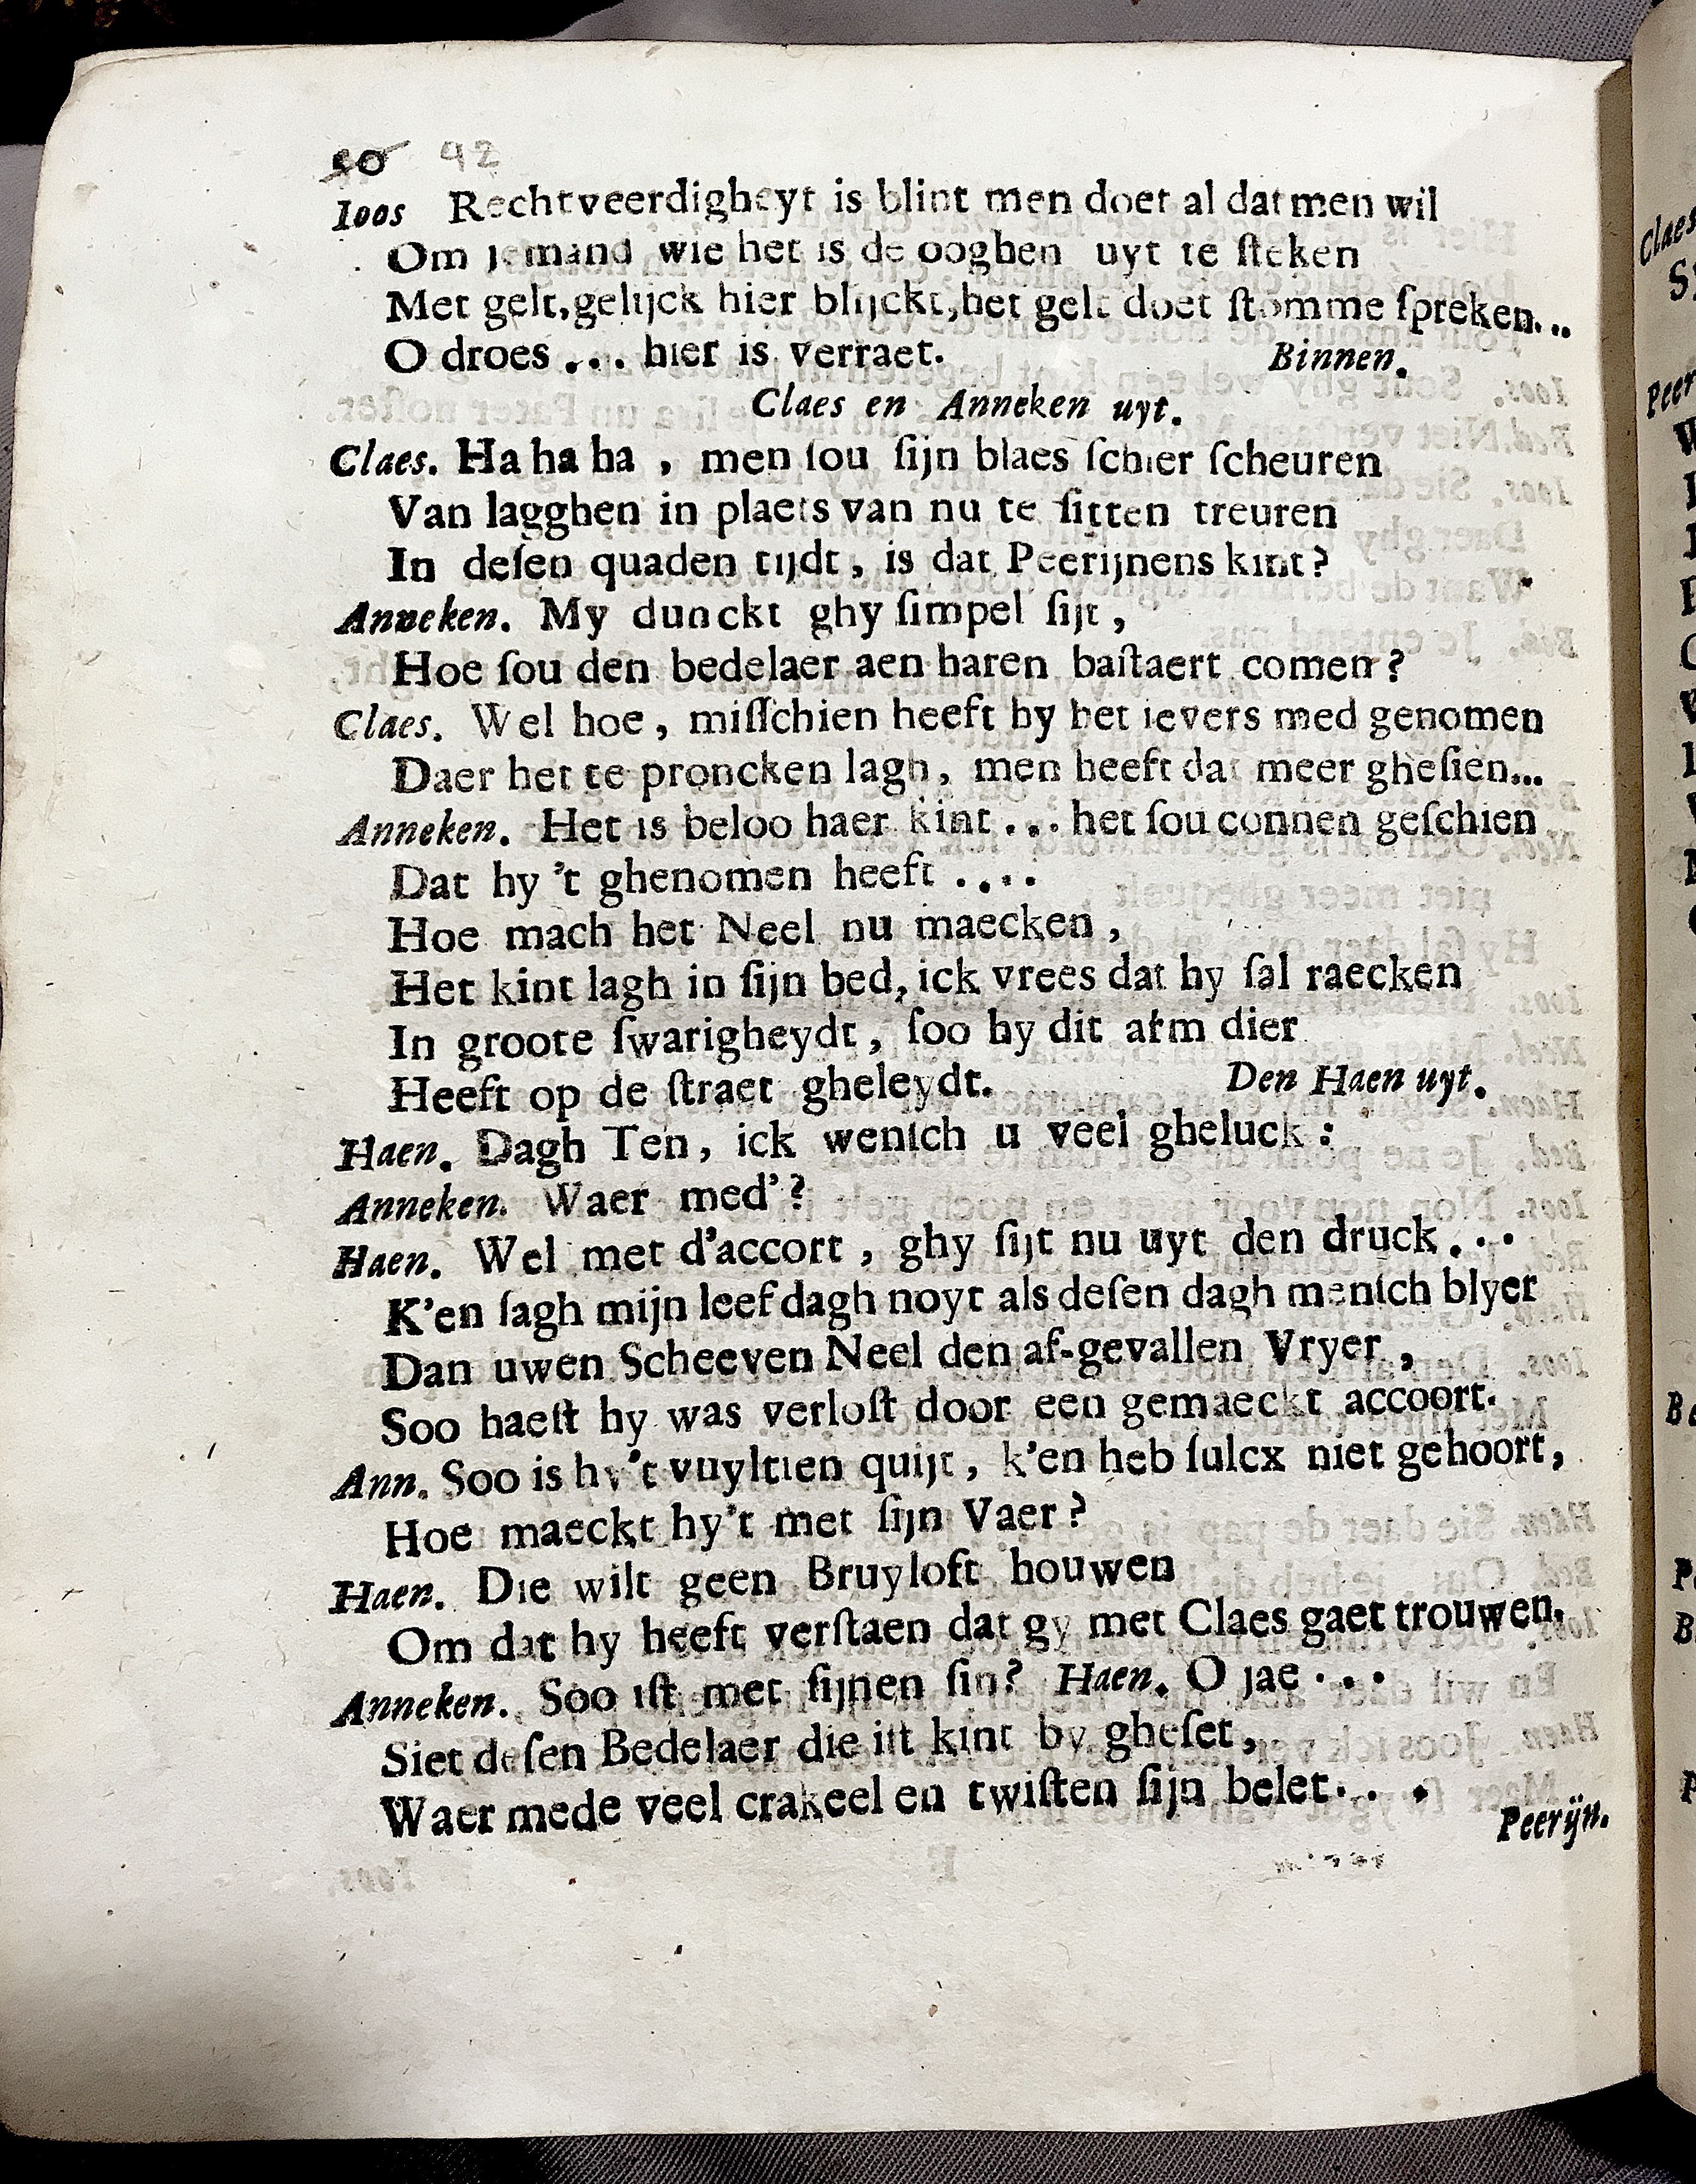 50 92
Ioos Rechtveerdigheyt is blint men doet al dat men wil
Om jemand wie het is de ooghen uyt te ſteken
Met gelt,gelijck hier blijckt,het gelt doet ſtomme ſpreken...
O droes ... hier is verraet. Binnen.
Claes en Anneken uyt.
Claes. Ha ha ha , men ſou ſijn blaes ſchier ſcheuren
Van lagghen in plaets van nu te ſitten treuren
In deſen quaden tijdt , is dat Peerijnens kint?
Anneken. My dunckt ghy ſimpel ſijt ,
Hoe ſou den bedelaer aen haren baſtaert comen ?
Claes. Wel hoe , miſſchien heeft hy het ievers med genomen
Daer het te proncken lagh , men heeft dat meer gheſien...
Anneken. Het is beloo haer kint ... het ſou connen geſchien
Dat hy 't ghenomen heeft ....
Hoe mach het Neel nu maecken ,
Het kint lagh in ſijn bed, ick vrees dat hy ſal raecken
In groote ſwarigheydt , ſoo hy dit arm dier
Heeft op de ſtraet gheleydt. Den Haen uyt.
Haen. Dagh Ten , ick wenſch u veel gheluck :
Anneken. Waer med' ?
Haen. Wel met d'accort , ghy ſijt nu uyt den druck ...
K'en ſagh mijn leefdagh noyt als deſen dagh menſch blyer
Dan uwen Scheeven Neel den af-gevallen Vryer ,
Soo haeſt hy was verloſt door een gemaeckt accoort.
Ann. Soo is hy't vuyltien quijt , k'en heb ſulcx niet gehoort,
Hoe maeckt hy't met ſijn Vaer ?
Haen. Die wilt geen Bruyloft houwen
Om dat hy heeft verſtaen dat gy met Claes gaet trouwen.
Anneken. Soo iſt met ſijnen ſin? Haen. O jae ...
Siet deſen Bedelaer die iſt kint by gheſet ,
Waer mede veel crakeel en twiſten ſijn belet ...
Peerijn.